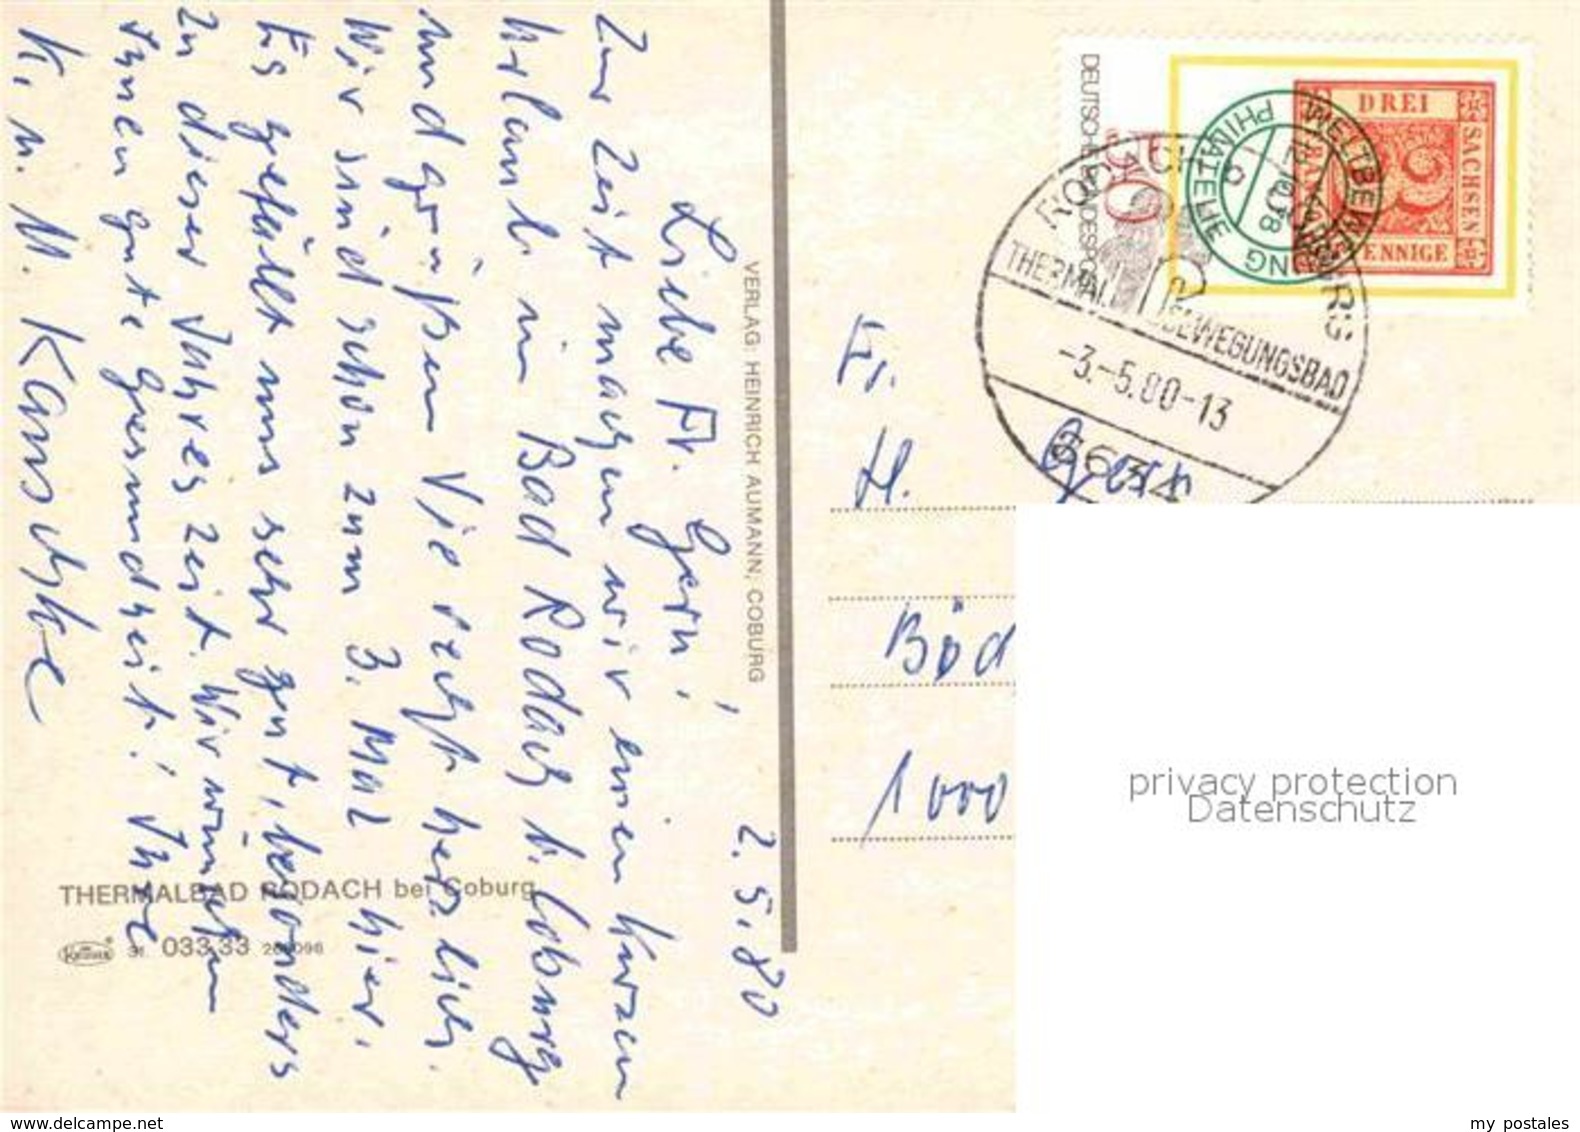 2.5.80
Liebe Fr. Gern!
Zur Zeit machen wir einen kurzen
Urlaub in Bad Rodach b. Coburg
und grüßen Sie recht herzlich.
Wir sind schon zum 3. Mal hier.
Es gefällt uns sehr gut, besonders
zu dieser Jahreszeit. Wir wünschen
Ihnen gute Gesundheit! Ihre
K. u. M.
VERLAG: HEINRICH AUMANN, COBURG
THERMALBAD RODACH bei Coburg
KRÜGER
31. 033 33
DEUTSCHE BUNDESPOST
50
DREI
SACHSEN
3
PFENNIGE
WELTBEWEGUNG
PHILATELIE
RODACH
COBURG
THERMAL BEWEGUNGSBAD
-3.-5.80-13
8634
Fr.
H. Gern
Böd
1000
privacy protection
Datenschutz
delcampe.net
my postales